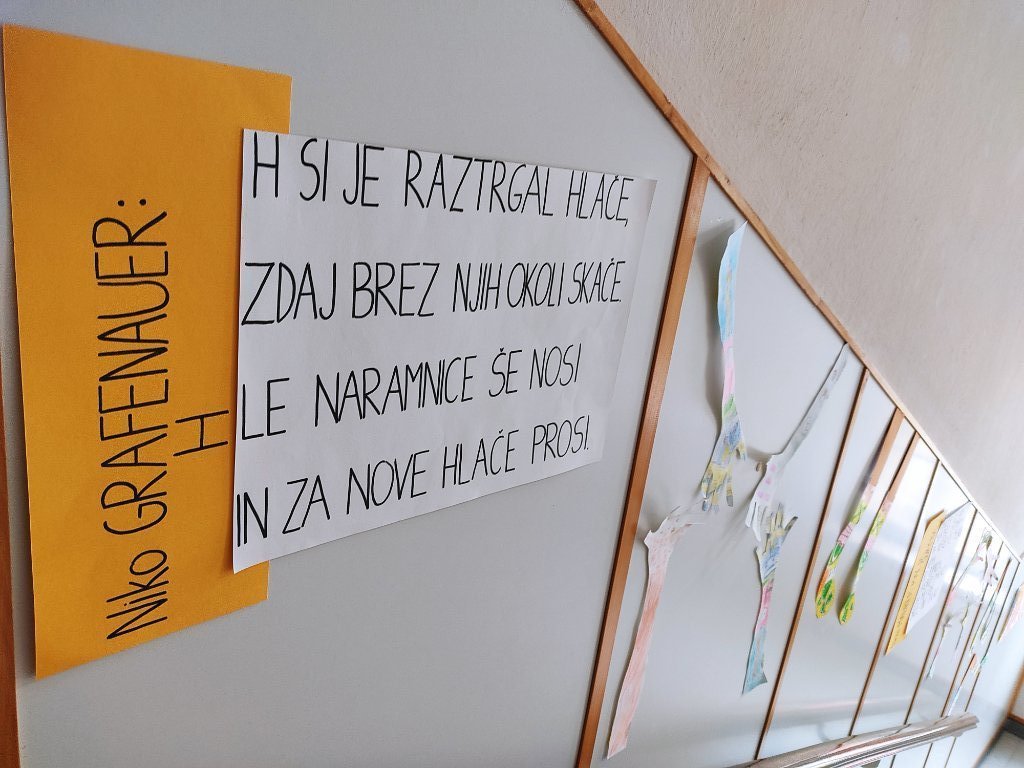 Niko GRAFENAUER:
H
H SI JE RAZTRGAL HLAČE,
ZDAJ BREZ NJIH OKOLI SKAČE.
LE NARAMNICE ŠE NOSI
IN ZA NOVE HLAČE PROSI.